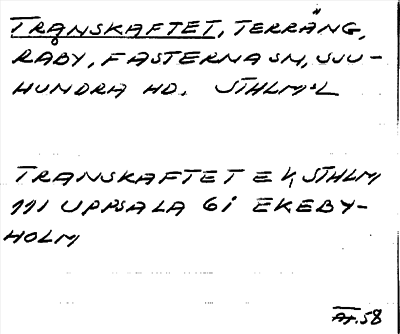 TRANSKAFTET, TERRÄNG,
RÅBY, FASTERNA SN, SJU-
HUNDRA HD. STHLMS L
TRANSKAFTET E V, STHLM
111 UPPSALA 6i EKEBY-
HOLM
At. 58